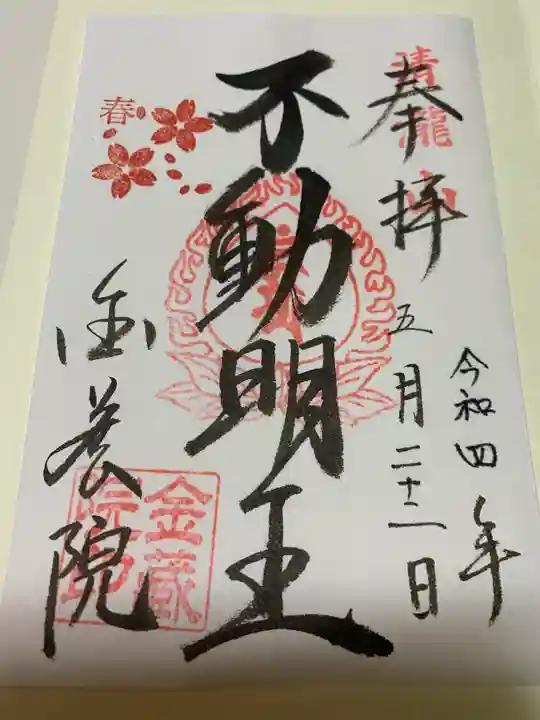 奉拝
青龍山
令和四年
五月二十二日
不動明王
春
金蔵院
金蔵
院印